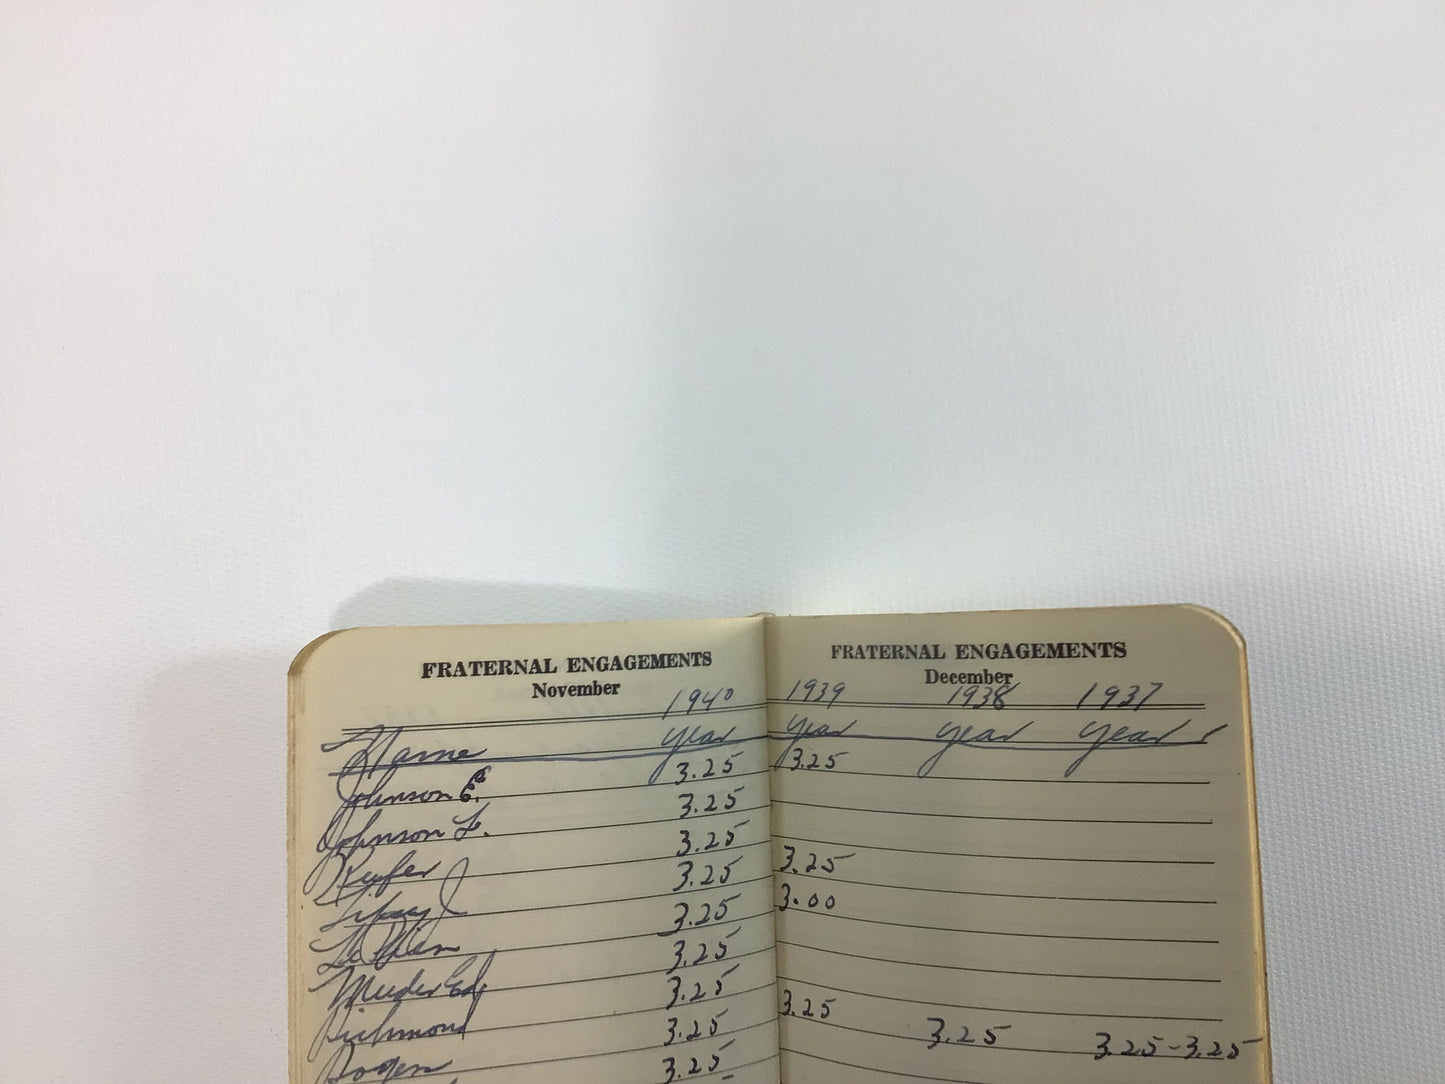 FRATERNAL ENGAGEMENTS
November
1940
Name year
Johnson E. 3.25
Johnson F. 3.25
Kiefer 3.25
J 3.25
3.25
Meeder Ed 3.25
Richmond 3.25
Rogers 3.25
3.25
FRATERNAL ENGAGEMENTS
December
1939 1938 1937
year year year
3.25
3.25
3.00
3.25
3.25 3.25-3.25